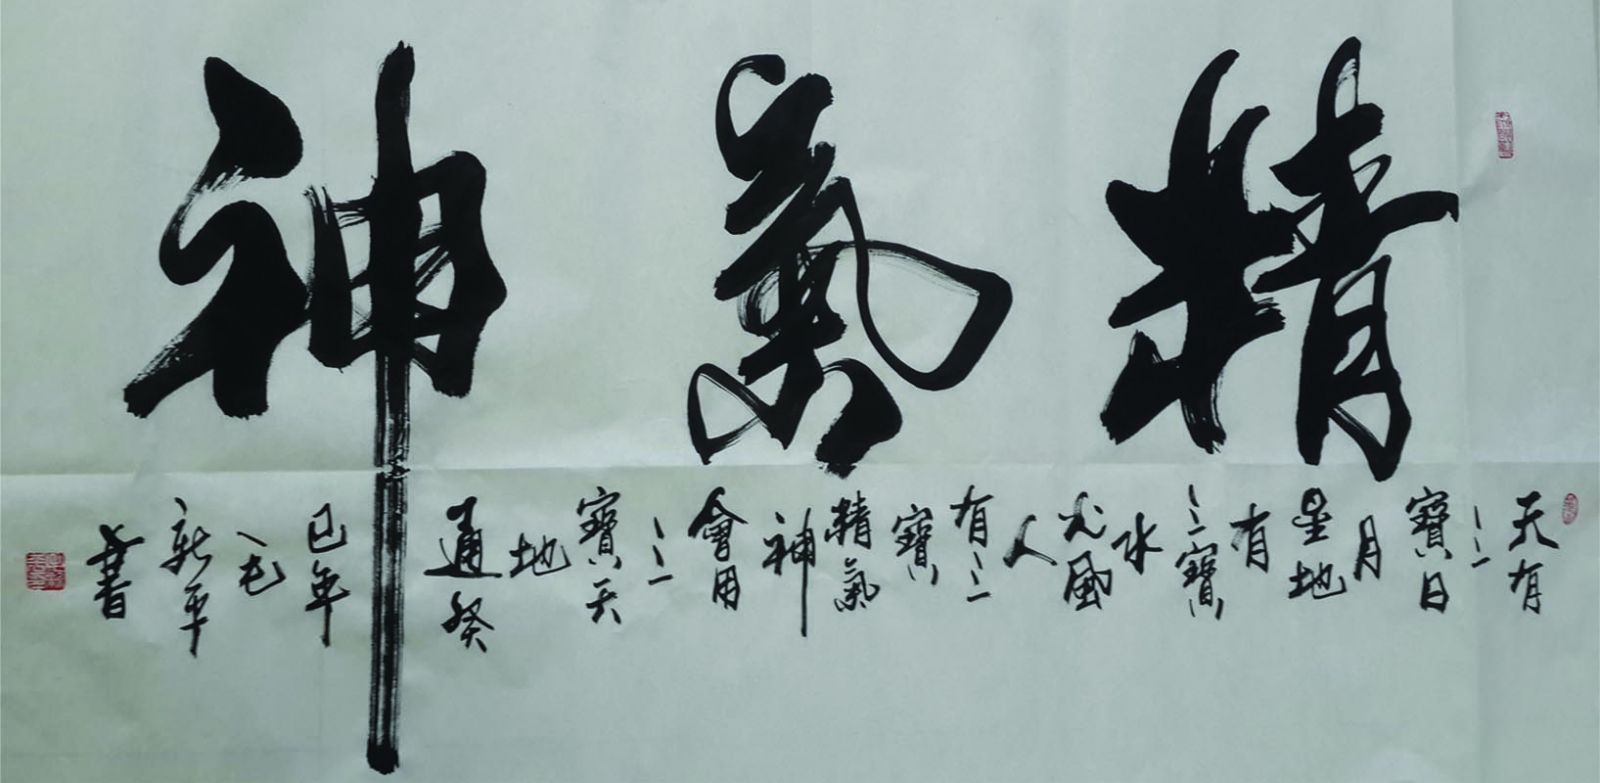 精氣神
天有
三
寶日
月
星地
有
三寶
水
火風
人
有三
寶
精氣
神
會用
三
寶天
地
通癸
巳年
新平
書